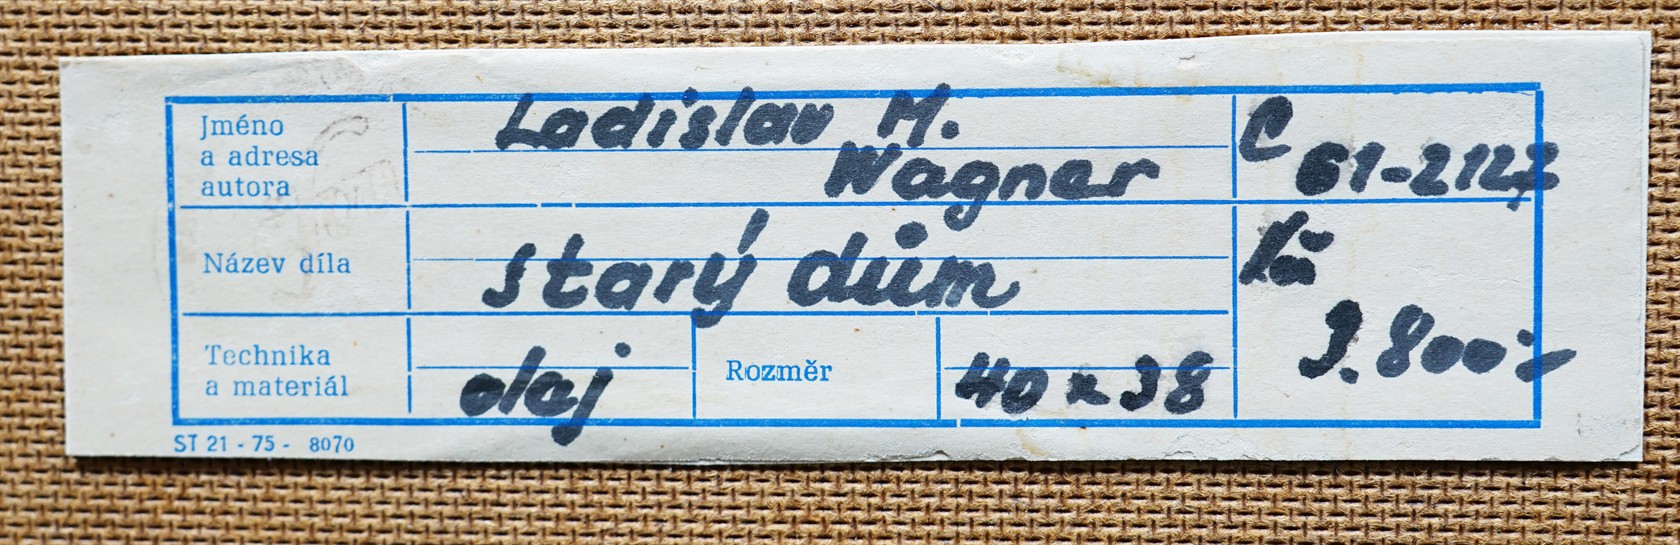 Jméno
a adresa
autora
Ladislav M.
Wagner
C
61-2127
Název díla
starý dům
Kčs
3.800:-
Technika
a materiál
olej
Rozměr
40 x 38
ST 21 - 75 - 8070